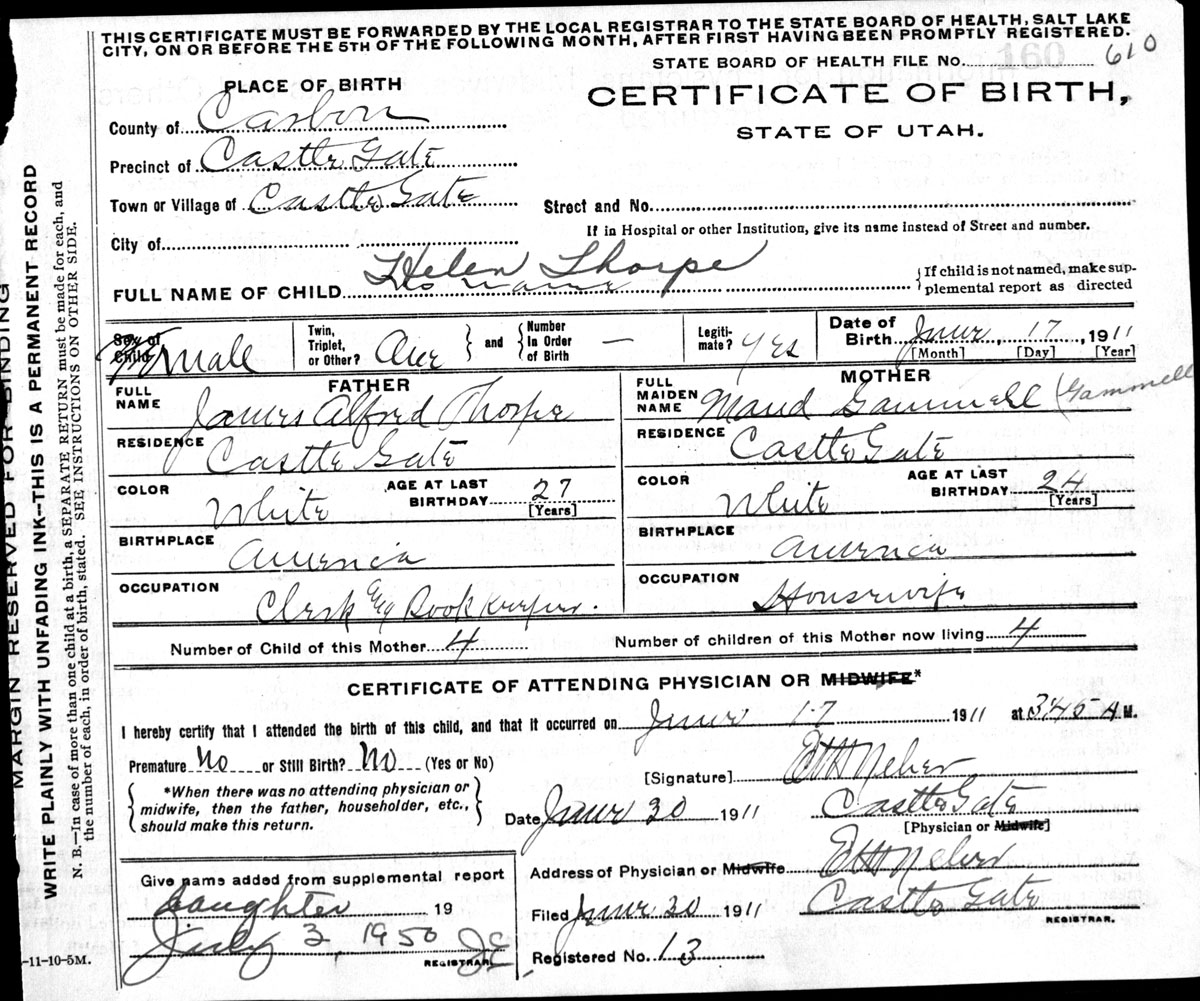 THIS CERTIFICATE MUST BE FORWARDED BY THE LOCAL REGISTRAR TO THE STATE BOARD OF HEALTH, SALT LAKE
CITY, ON OR BEFORE THE 5TH OF THE FOLLOWING MONTH, AFTER FIRST HAVING BEEN PROMPTLY REGISTERED.
STATE BOARD OF HEALTH FILE No. 160 610
PLACE OF BIRTH
CERTIFICATE OF BIRTH,
STATE OF UTAH.
County of Carbon
Precinct of Castle Gate
Town or Village of Castle Gate
Street and No.
If in Hospital or other Institution, give its name instead of Street and number.
City of
FULL NAME OF CHILD Helen Thorpe No name
{If child is not named, make sup-
plemental report as directed
Sex of Child Female
Twin, Triplet, or Other? One } and { Number In Order of Birth —
Legiti-mate? Yes
Date of Birth 17, 1911
[Month] [Day] [Year]
FATHER
FULL NAME James Alfred Thorpe
RESIDENCE Castle Gate
COLOR White AGE AT LAST BIRTHDAY 27 [Years]
BIRTHPLACE America
OCCUPATION Clerk Book Keeper.
MOTHER
FULL MAIDEN NAME Maud Gammell (Gammell
RESIDENCE Castle Gate
COLOR White AGE AT LAST BIRTHDAY 24 [Years]
BIRTHPLACE America
OCCUPATION Housewife
Number of Child of this Mother 4 Number of children of this Mother now living 4
CERTIFICATE OF ATTENDING PHYSICIAN OR MIDWIFE*
I hereby certify that I attended the birth of this child, and that it occurred on 17 1911 at 3:45 A.M.
Premature No or Still Birth? No (Yes or No)
[Signature]
{ *When there was no attending physician or
midwife, then the father, householder, etc.,
should make this return. }
Date 30 1911 Castle Gate
[Physician or Midwife]
Address of Physician or Midwife
Filed 30 1911 Castle Gate
REGISTRAR.
Registered No. 13
Give name added from supplemental report
daughter 19
July 3, 1950
REGISTRAR
-11-10-5M.
MARGIN RESERVED FOR BINDING
WRITE PLAINLY WITH UNFADING INK--THIS IS A PERMANENT RECORD
N. B.—In case of more than one child at a birth, a SEPARATE RETURN must be made for each, and
the number of each, in order of birth, stated. SEE INSTRUCTIONS ON OTHER SIDE.